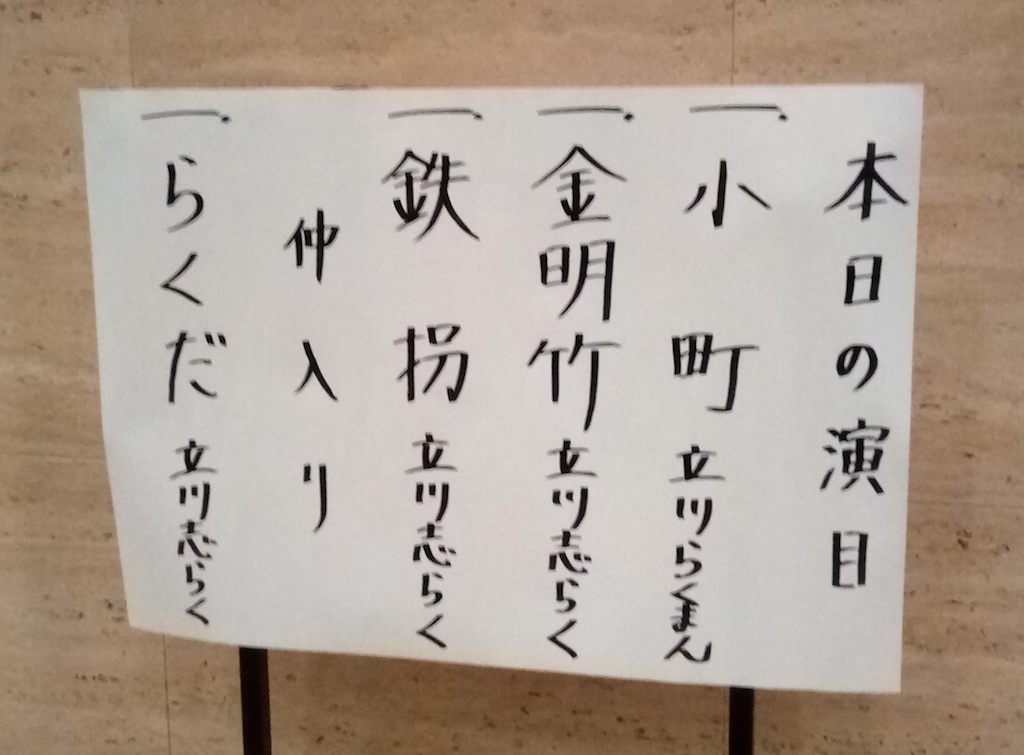 本日の演目
一. 小町 立川らくまん
一. 金明竹 立川志らく
一. 鉄拐 立川志らく
仲入り
一. らくだ 立川志らく